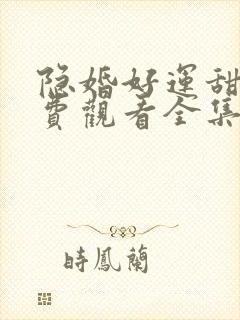 隐婚好運甜
費觀看全集
時鳳蘭